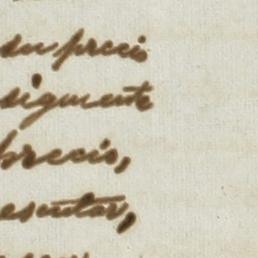 su precio
siguiente
precio,
esentar,